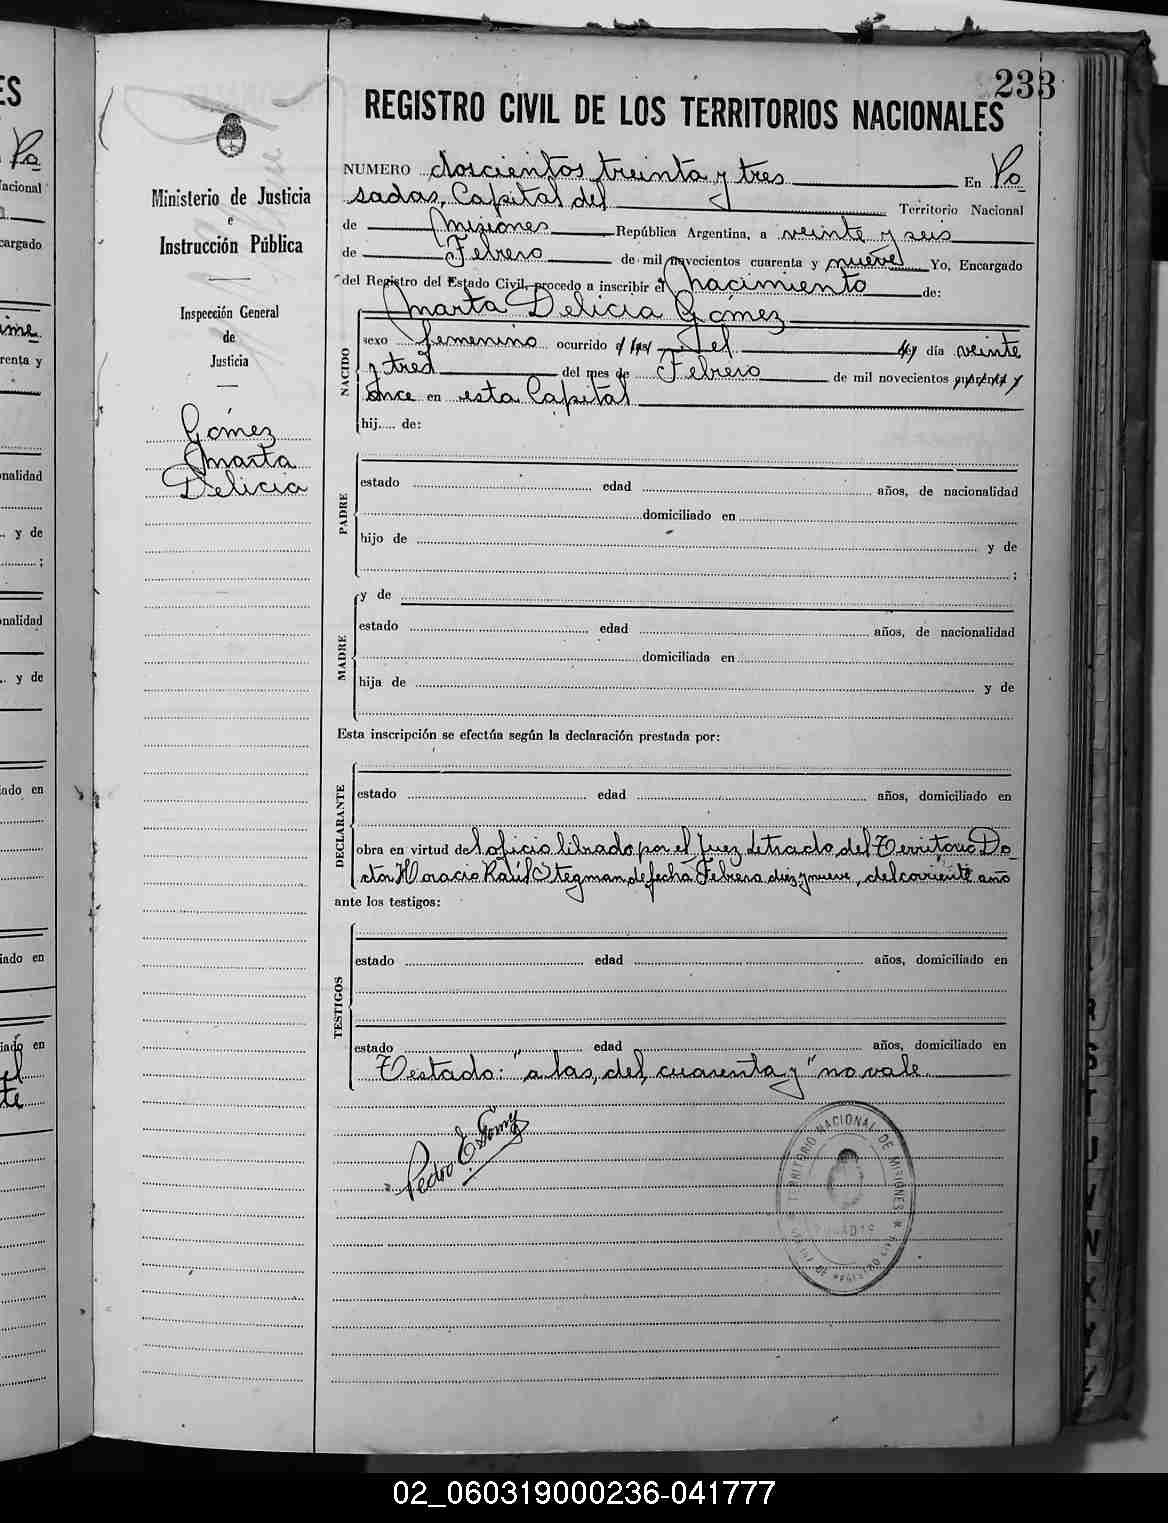 233
REGISTRO CIVIL DE LOS TERRITORIOS NACIONALES
Ministerio de Justicia
e
Instrucción Pública
Inspección General
de
Justicia
Gómez
Marta
Delicia
NUMERO doscientos treinta y tres En Po
sadas, Capital del Territorio Nacional
de Misiones República Argentina, a veinte y seis
de Febrero de mil novecientos cuarenta y nueve Yo, Encargado
del Registro del Estado Civil, procedo a inscribir el nacimiento de:
Marta Delicia Gómez
NACIDO
sexo femenino ocurrido a las del del día veinte
y tres del mes de Febrero de mil novecientos cuarenta y
once en esta Capital
hij..... de:
PADRE
estado edad años, de nacionalidad
domiciliado en
hijo de y de
;
MADRE
y de
estado edad años, de nacionalidad
domiciliada en
hija de y de
Esta inscripción se efectúa según la declaración prestada por:
DECLARANTE
estado edad años, domiciliado en
obra en virtud del oficio librado por el Juez letrado del Territorio Do
ctor Horacio Raúl Stegman de fecha Febrero diez y nueve, del corriente año
ante los testigos:
TESTIGOS
estado edad años, domiciliado en
estado edad años, domiciliado en
Testado: "a las, del, cuarenta y" no vale
Pedro E. Gomez
TERRITORIO NACIONAL DE MISIONES
POSADAS
REGISTRO CIVIL
02_060319000236-041777